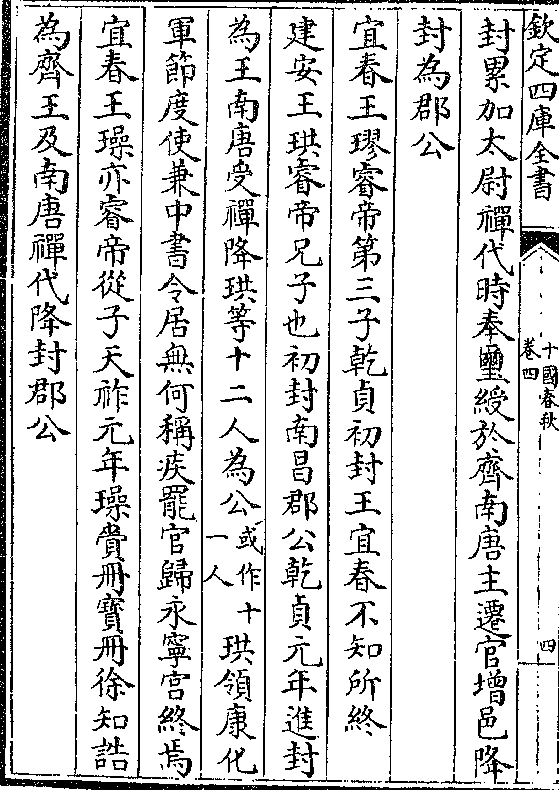 欽定四庫全書
十國春秋
卷四
四
封累加太尉禪代時奉璽綬於齊南唐主遷官增邑降
封為郡公
宜春王璆睿帝第三子乾貞初封王宜春不知所終
建安王珙睿帝兄子也初封南昌郡公乾貞元年進封
為王南唐受禪降珙等十二人為公或作十一人珙領康化
軍節度使兼中書令居無何稱疾罷官歸永寧宮終焉
宜春王璪亦睿帝從子天祚元年璪賫冊寶冊徐知誥
為齊王及南唐禪代降封郡公